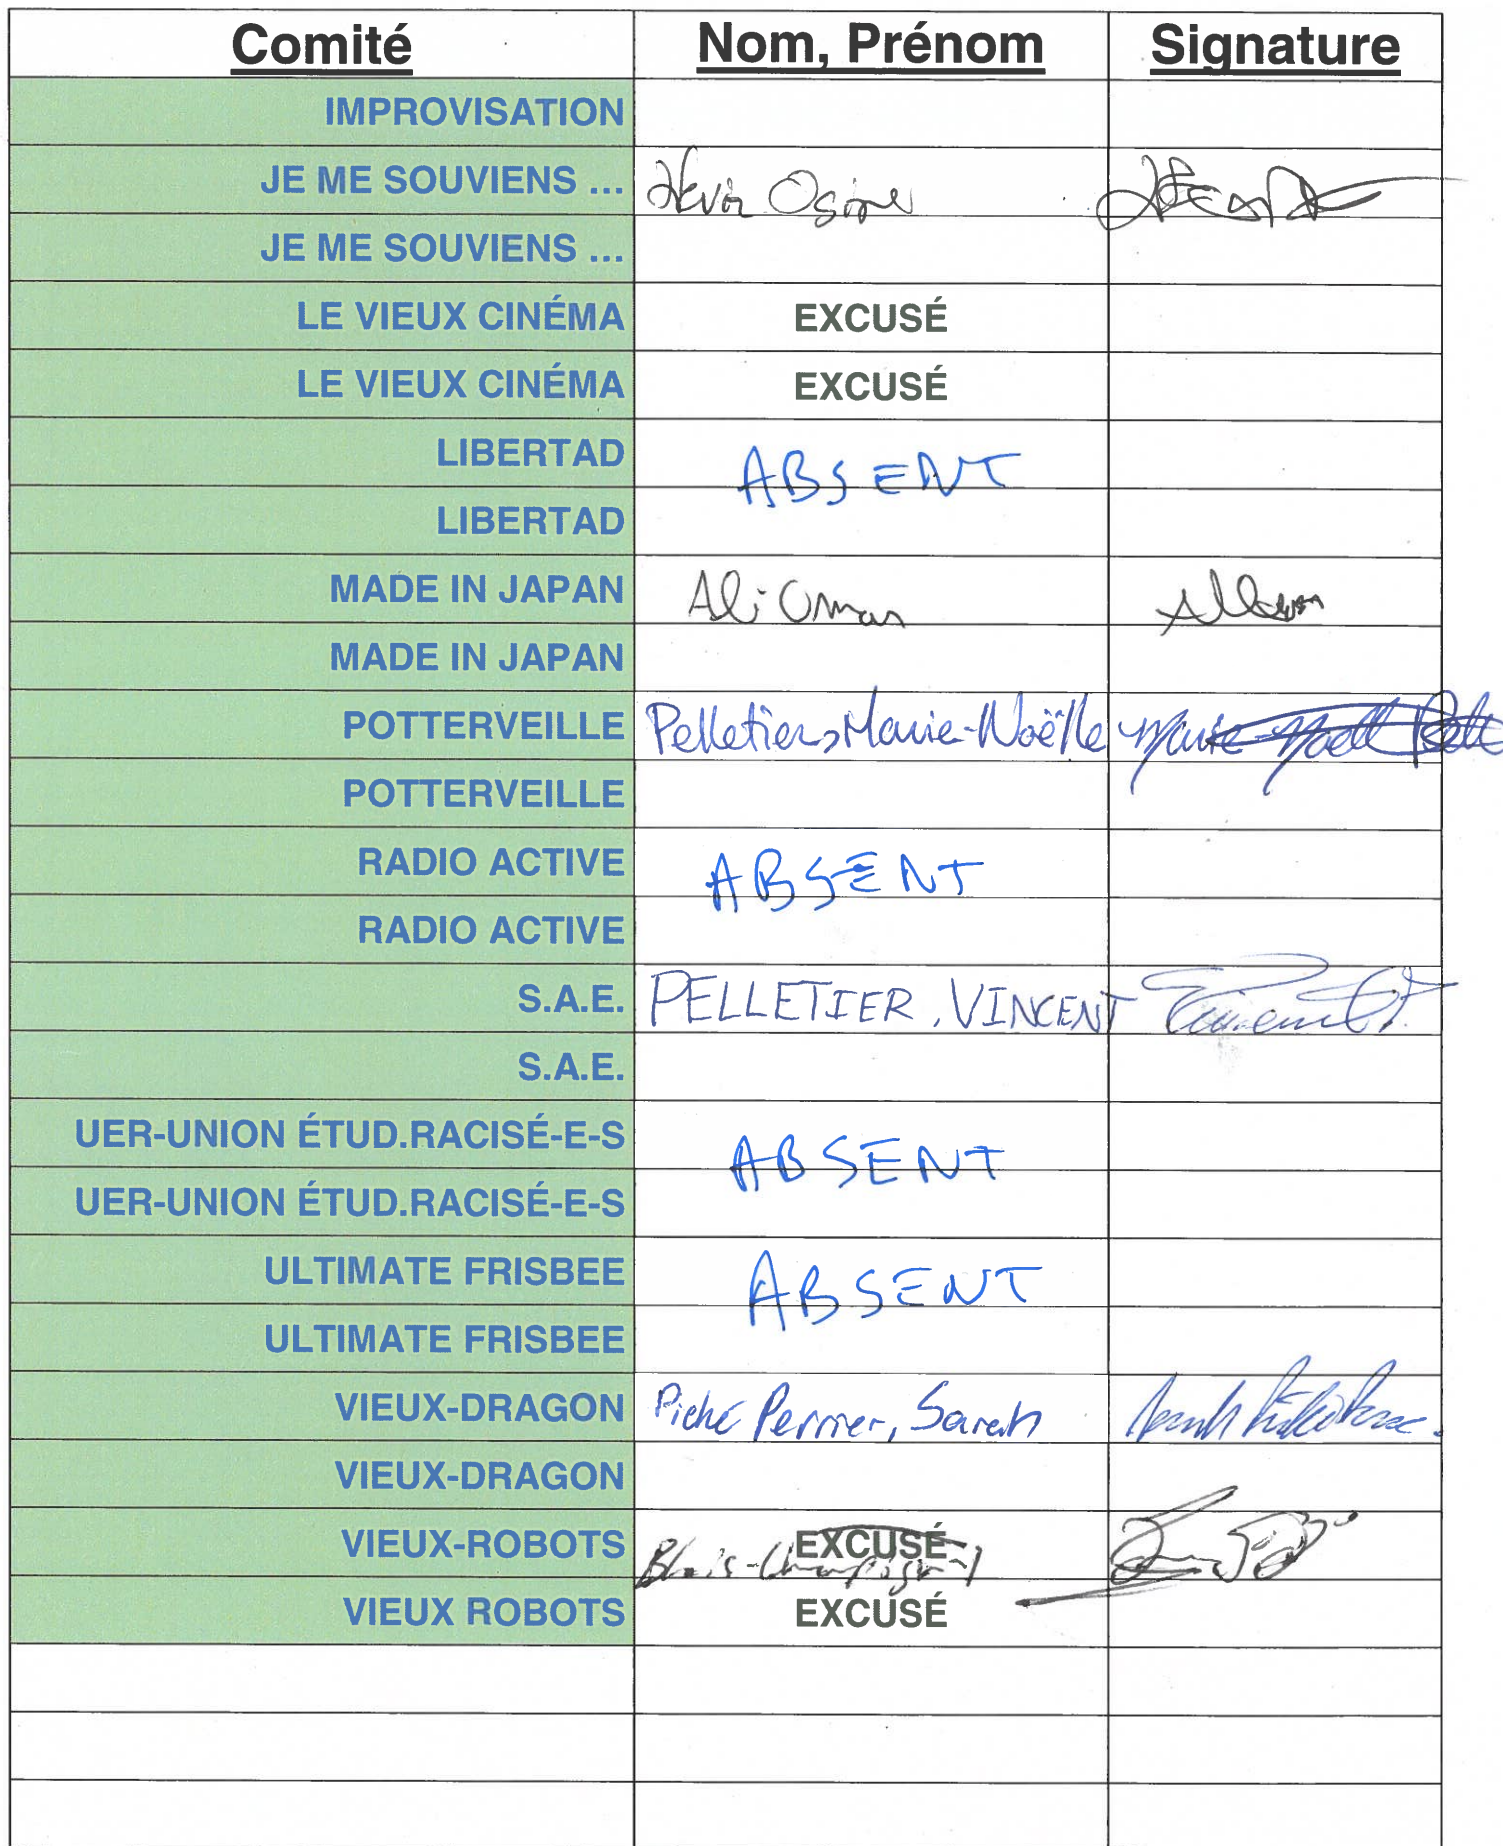 Comité Nom, Prénom Signature
IMPROVISATION
JE ME SOUVIENS ... Kevin
JE ME SOUVIENS ...
LE VIEUX CINÉMA EXCUSÉ
LE VIEUX CINÉMA EXCUSÉ
LIBERTAD ABSENT
LIBERTAD
MADE IN JAPAN Ali Omar
MADE IN JAPAN
POTTERVEILLE Pelletier, Marie-Noëlle Marie-Noëll
POTTERVEILLE
RADIO ACTIVE ABSENT
RADIO ACTIVE
S.A.E. PELLETIER, VINCENT
S.A.E.
UER-UNION ÉTUD.RACISÉ-E-S ABSENT
UER-UNION ÉTUD.RACISÉ-E-S
ULTIMATE FRISBEE ABSENT
ULTIMATE FRISBEE
VIEUX-DRAGON Piché Perrier, Sarah
VIEUX-DRAGON
VIEUX-ROBOTS EXCUSÉ
VIEUX ROBOTS EXCUSÉ